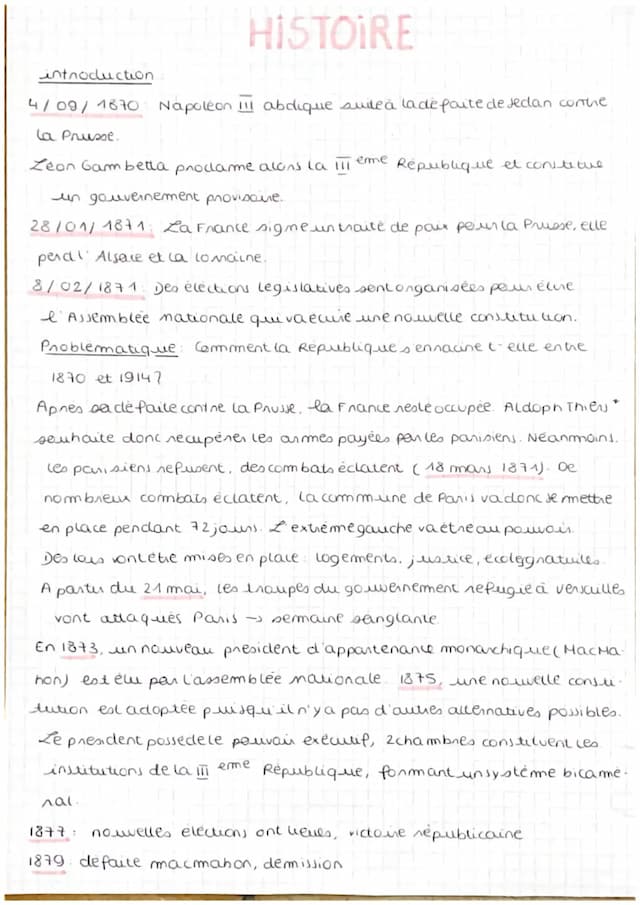 HISTOIRE
introduction
4/09/1870 Napoléon III abdique suite à la défaite de sedan contre
la Prusse.
Léon Gambetta proclame alors la III eme République et constitue
un gouvernement provisoire.
28/01/1871: La France signe un traité de paix pour la Prusse, elle
perd l'Alsace et la lorraine.
8/02/1871: Des élections législatives sont organisées pour élire
l'Assemblée nationale qui va écrire une nouvelle constitution.
Problématique: Comment la République s'enracine t-elle entre
1870 et 1914?
Apres sa défaite contre la Prusse, la France reste occupée. Aldoph Thiers *
souhaite donc recupérer les armes payées par les parisiens. Néanmoins,
les parisiens refusent, des combats éclatent (18 mars 1871). De
nombreux combats éclatent, la commune de Paris va donc se mettre
en place pendant 72 jours. L'extrême gauche va être au pouvoir.
Des lois vont être mises en place: logements, justice, écoles gratuites.
A partir du 21 mai, les troupes du gouvernement refugié à versailles
vont attaqués Paris → semaine sanglante
En 1873, un nouveau président d'appartenance monarchique (MacMa-
hon) est élu par l'assemblée nationale. 1875, une nouvelle consti-
tution est adoptée puisqu'il n'y a pas d'autres alternatives possibles.
Le president possède le pouvoir exécutif, 2 chambres constituent les
institutions de la III eme République, formant un système bicamé-
ral.
1877: nouvelles élections ont lieues, victoire républicaine
1879: défaite macmahon, démission